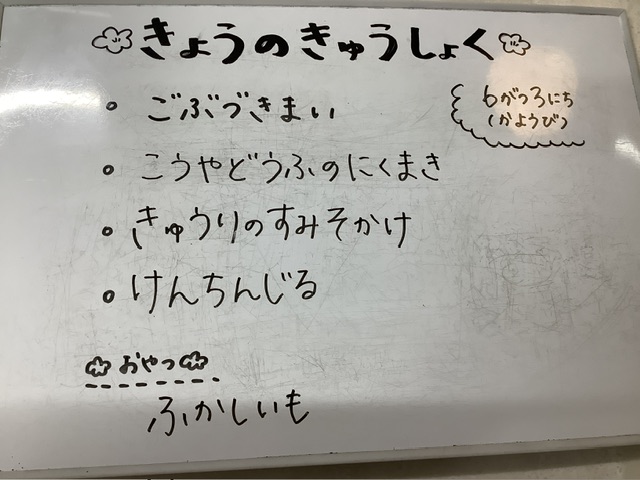 きょうのきゅうしょく
6がつ3にち
(かようび)
ごぶづきまい
こうやどうふのにくまき
きゅうりのすみそかけ
けんちんじる
おやつ
ふかしいも